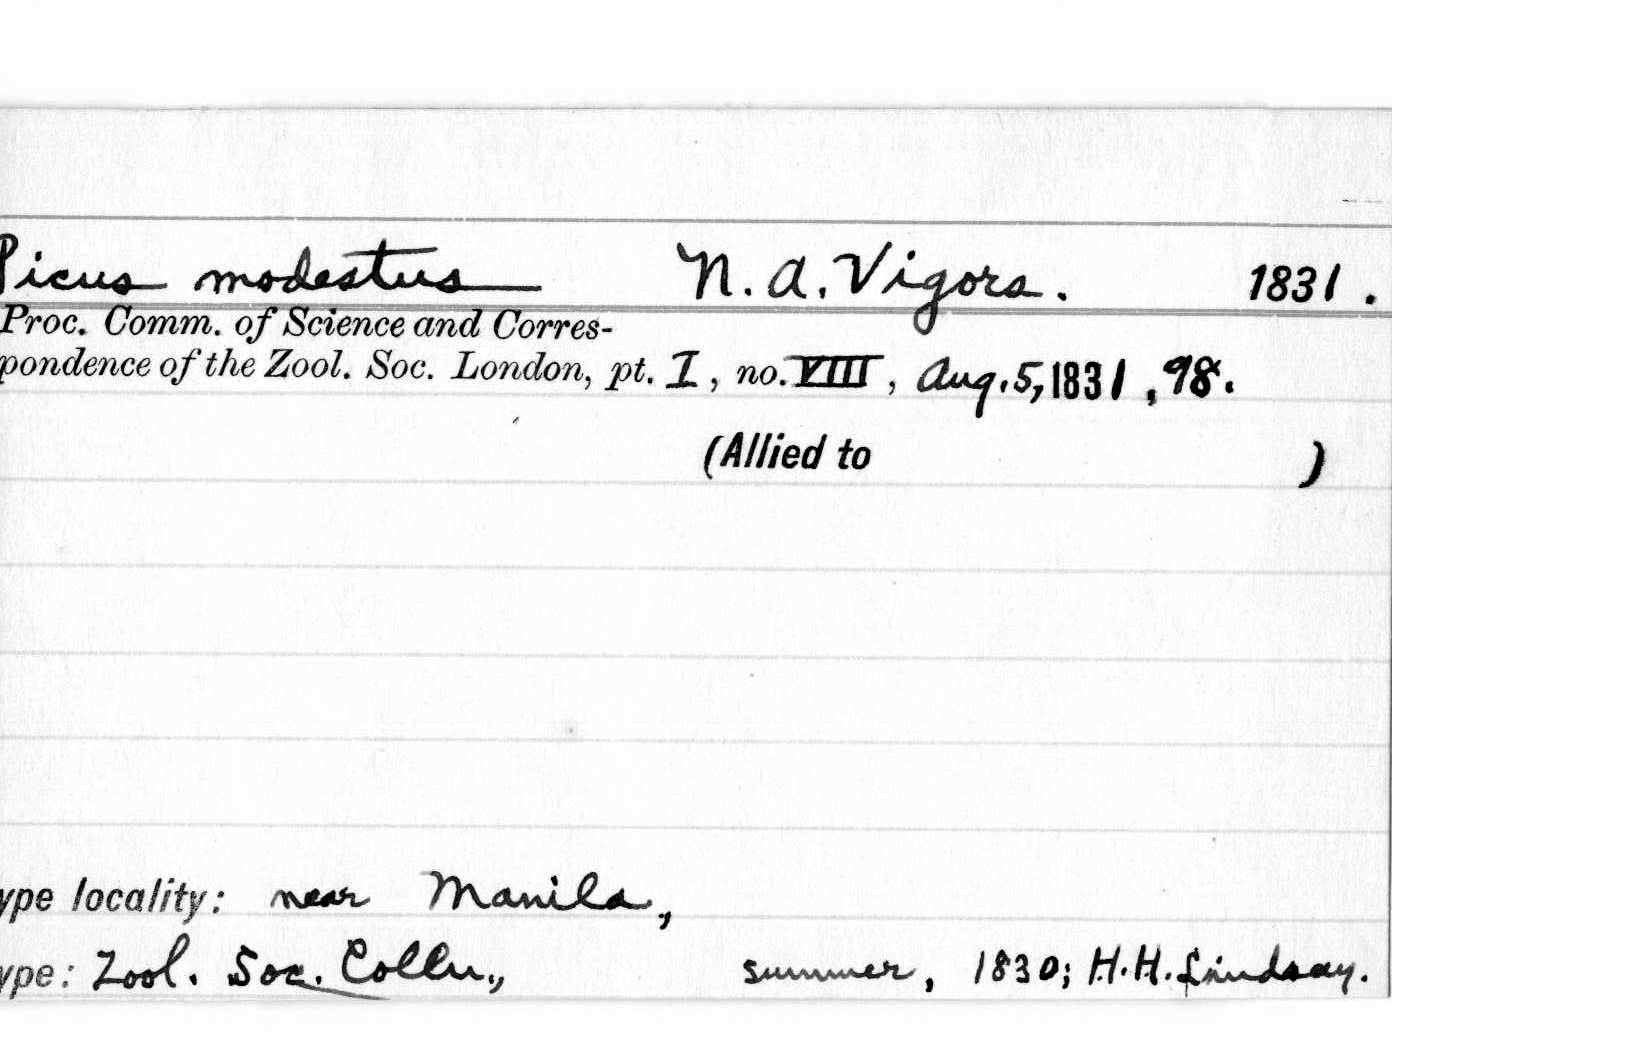 Picus modestus N. A. Vigors. 1831.
Proc. Comm. of Science and Corres-
pondence of the Zool. Soc. London, pt. I, no. VIII, Aug. 5, 1831, 98.
(Allied to )
ype locality: near Manila,
ype: Zool. Soc. Colln., summer, 1830; H. H. Lindsay.